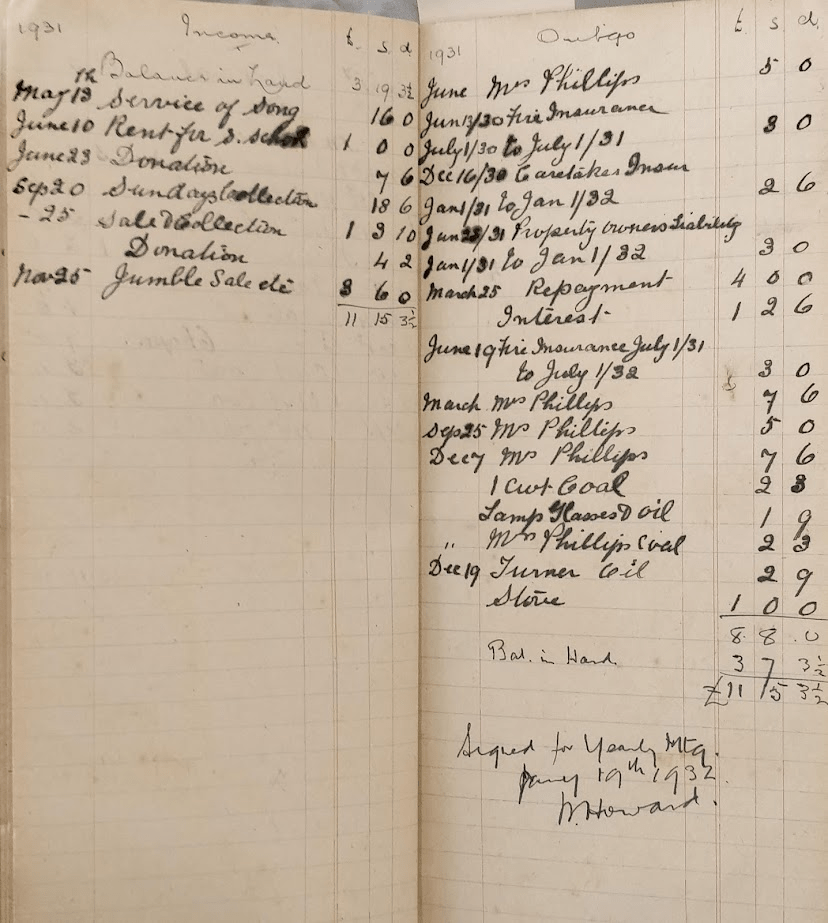 1931 Income £ s d
Balance in hand 3 19 3½
May 13th Service of Song 16 0
June 10 Rent for S. School 1 0 0
June 23 Donation 7 6
Sep 20 Sundays Collection 18 6
- 25 Sale & Collection 1 3 10
Donation 4 2
Nov 25 Jumble Sale etc 3 6 0
11 15 3½
1931 Outgo £ s d
June Mrs Phillips 5 0
Jun 13/30 Fire Insurance
July 1/30 to July 1/31 3 0
Dec 16/30 Caretakers Insur
Jan 1/31 to Jan 1/32 2 6
Jan 23/31 Property owners Liability
Jan 1/31 to Jan 1/32 3 0
March 25 Repayment 4 0 0
Interest 1 2 6
June 19 Fire Insurance July 1/31
to July 1/32 3 0
March Mrs Phillips 7 6
Sep 25 Mrs Phillips 5 0
Dec 7 Mrs Phillips 7 6
1 Cwt Coal 2 3
Lamp Glasses & oil 1 9
" Mrs Phillips Coal 2 3
Dec 19 Turner Oil 2 9
Stove 1 0 0
8 8 0
Bal. in Hand. 3 7 3½
£11 15 3½
Signed for Yearly Mtg.
Jany 19th 1932.
W. Howard.